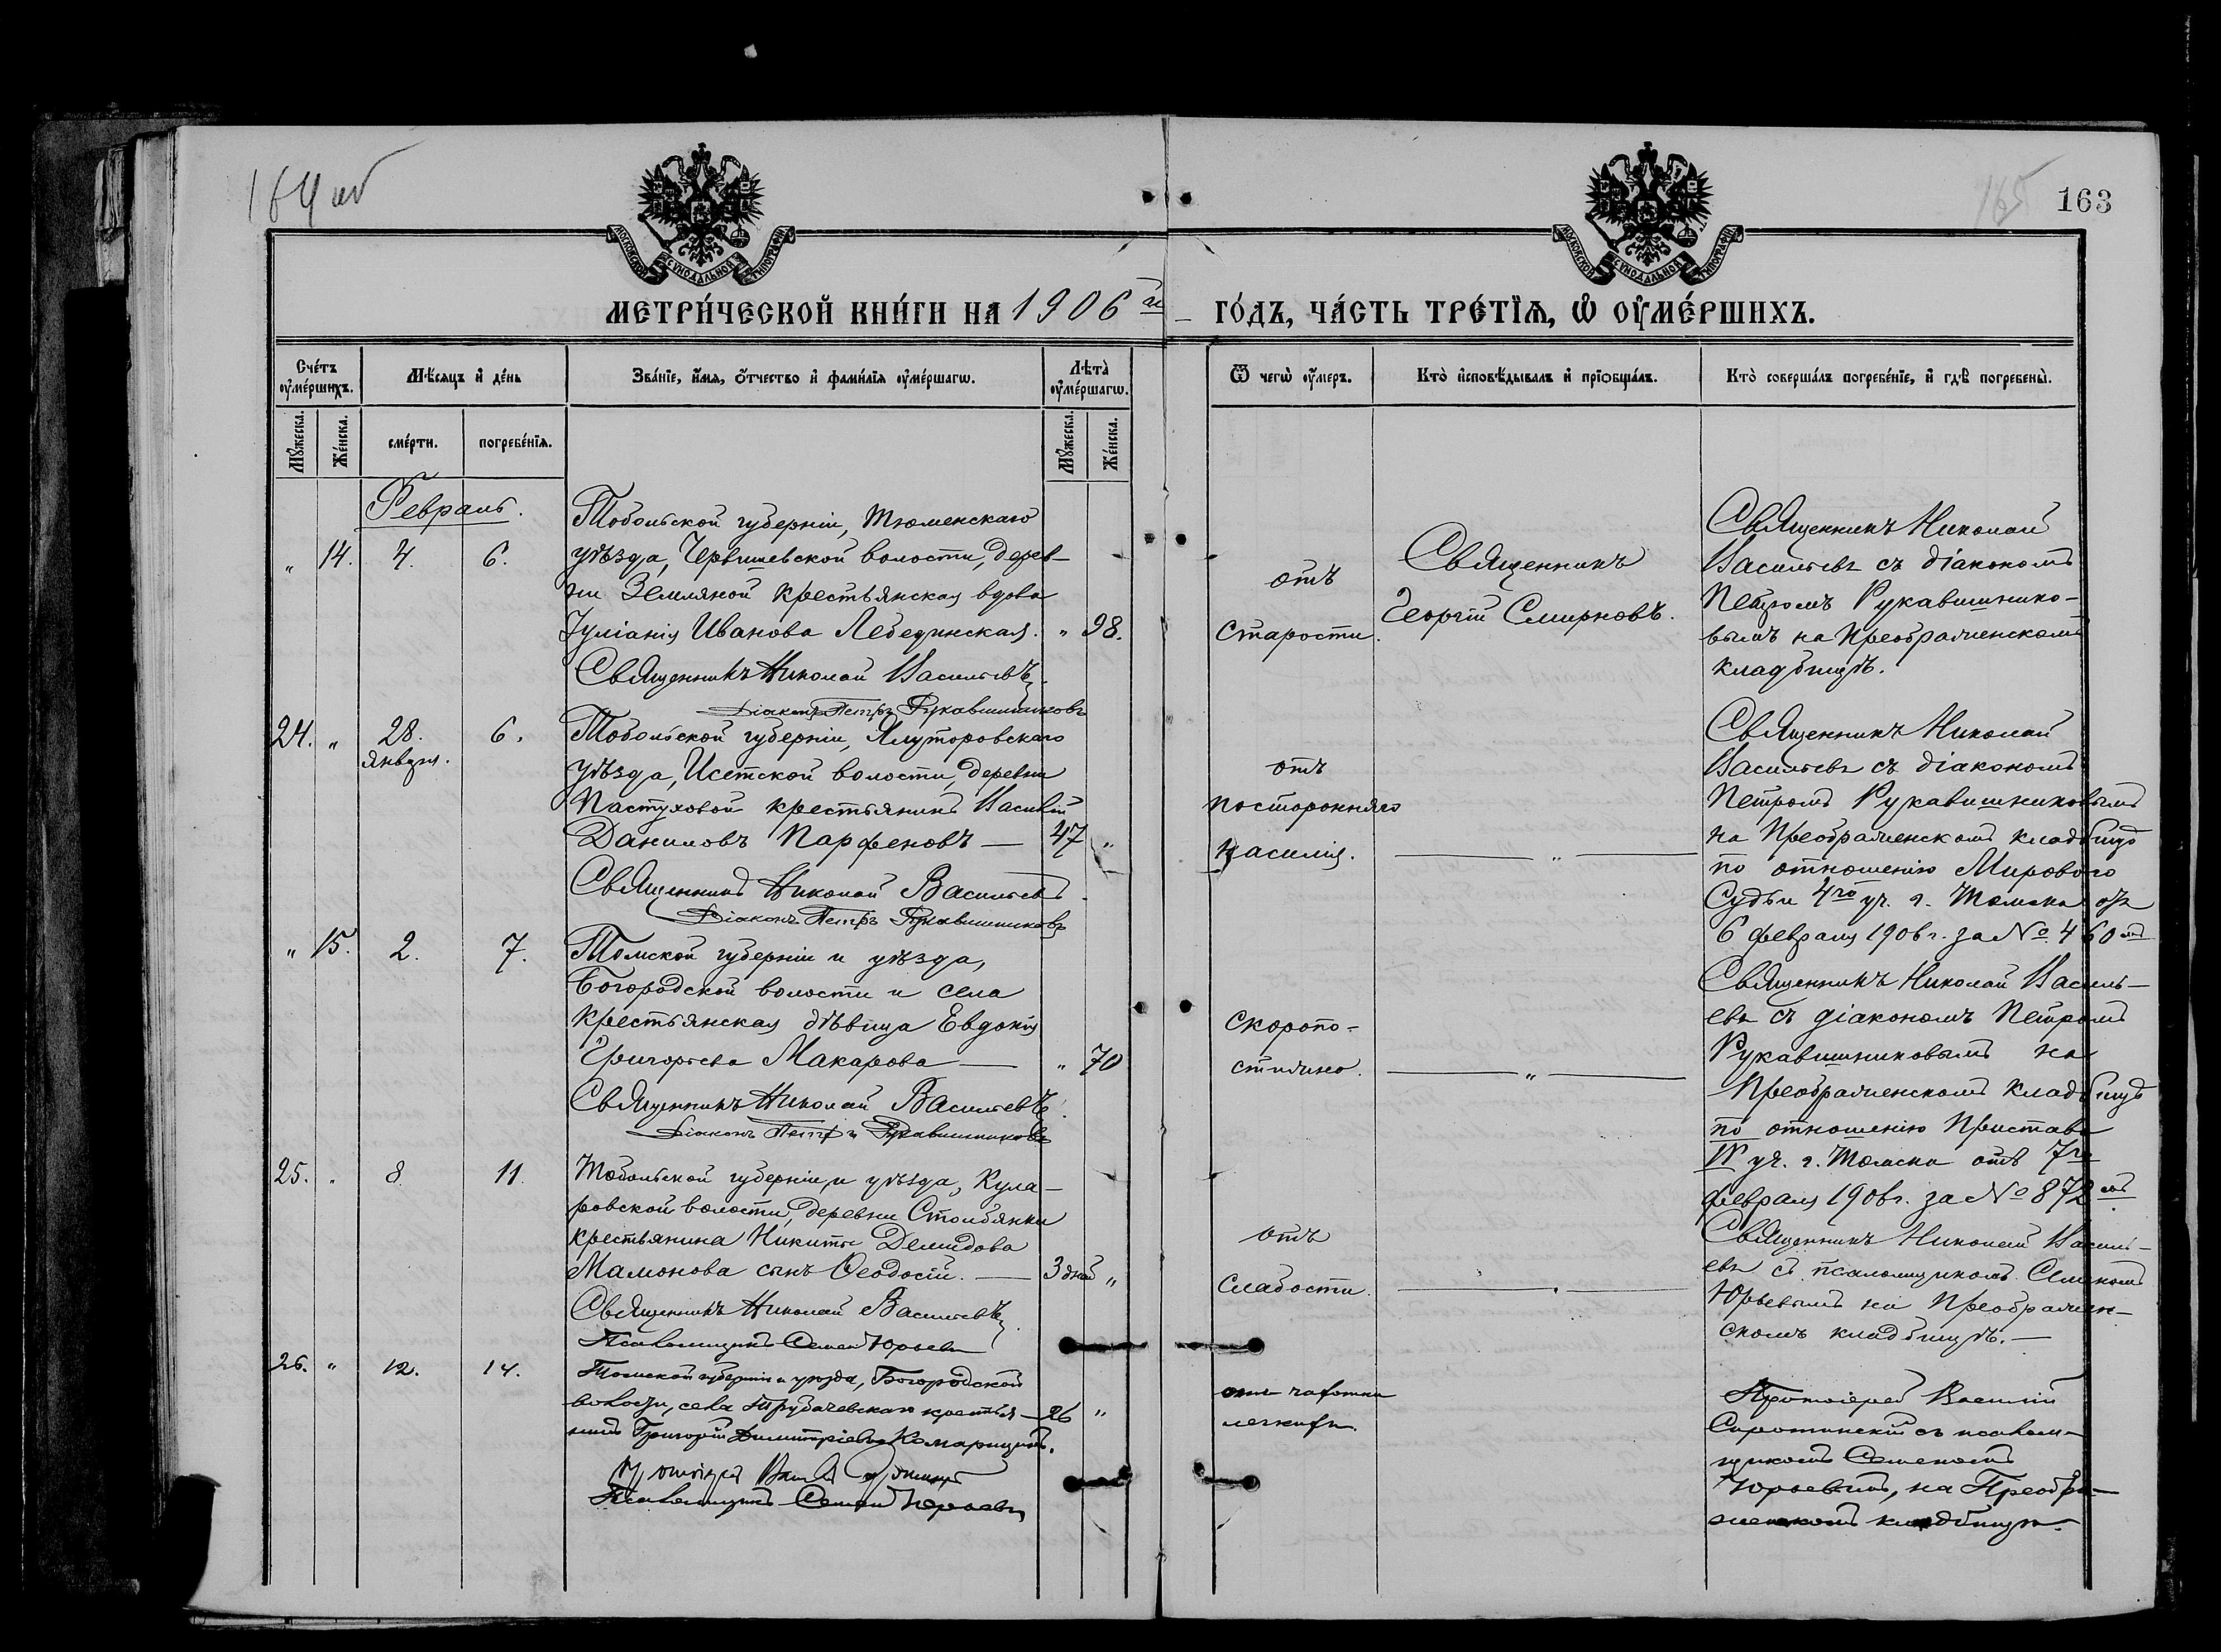 164 об
165
163
МОСКОВСКОЙ СѴНОДАЛЬНОЙ ТИПОГРАФІИ
МОСКОВСКОЙ СѴНОДАЛЬНОЙ ТИПОГРАФІИ
МЕТРИ́ЧЕСКОЙ КНИ́ГИ НА 1906 й ГО́ДЪ, ЧА́СТЬ ТРЕ́ТІѦ, Ѡ҆ ОУ҆МЕ́РШИХЪ.
Сче́тъ оу҆ме́ршихъ.
Мѣ́сяцъ и҆ де́нь
Зва́нїе, и҆́мѧ, ѻ҆́тчество и҆ фами́лїѧ оу҆ме́ршагѡ.
Лѣ́та оу҆ме́ршагѡ.
Ѿ чегѡ̀ оу҆́меръ.
Кто̀ и҆сповѣ́дывалъ и҆ прїѡбща́лъ.
Кто̀ соверша́лъ погребе́нїе, и҆ гдѣ̀ погребены̀.
Мꙋ́жеска.
Же́нска.
сме́рти.
погребе́нїѧ.
Мꙋ́жеска.
Же́нска.
Февраль.
„ 14. 4. 6.
Тобольской губерніи, Тюменскаго
уѣзда, Червишевской волости, дерев-
ни Земляной крестьянская вдова
Іуліанія Иванова Лебединская. „ 98.
Священникъ Николай Васильевъ.
Діаконъ Петръ Рукавишниковъ
отъ
старости.
Священникъ
Георгій Смирновъ.
Священникъ Николай
Васильевъ съ діакономъ
Петромъ Рукавишнико-
вымъ на Преображенскомъ
кладбищѣ.
24. „ 28. января. 6.
Тобольской губерніи, Ялуторовскаго
уѣзда, Исетской волости, деревни
Пастуховой крестьянинъ Василій
Даниловъ Парфеновъ — 47 „
Священникъ Николай Васильевъ
Діаконъ Петръ Рукавишниковъ
отъ
посторонняго
насилія.
— „ —
Священникъ Николай
Васильевъ съ діакономъ
Петромъ Рукавишниковымъ
на Преображенскомъ кладбищѣ
по отношенію Мирового
Судьи 4го уч. г. Томска отъ
6 февраля 1906 г. за № 460 мъ
„ 15. 2. 7.
Томской губерніи и уѣзда,
Богородской волости и села
крестьянская дѣвица Евдокія
Григорьева Макарова — „ 70
Священникъ Николай Васильевъ.
Діаконъ Петръ Рукавишниковъ
скоропо-
стижно.
— „ —
Священникъ Николай Василь-
евъ съ діакономъ Петромъ
Рукавишниковымъ на
Преображенскомъ кладбищѣ
по отношенію Пристава
IV уч. г. Томска отъ 7го
февраля 1906 г. за № 872 мъ.
25. „ 8. 11.
Тобольской губерніи и уѣзда, Кула-
ровской волости, деревни Столбянки
крестьянина Никиты Демидова
Мамонова сынъ Ѳеодосій. — 3 дней „
Священникъ Николай Васильевъ.
Псаломщикъ Семенъ Юрьевъ
отъ
слабости.
— „ —
Священникъ Николай Василь-
евъ съ псаломщикомъ Семеномъ
Юрьевымъ на Преображен-
скомъ кладбищѣ. —
26. „ 12. 14.
Томской губерніи и уѣзда, Богородской
волости, села Трубачевскаго крестья-
нинъ Григорій Димитріевъ Комарицынъ. 26 „
Псаломщикъ Семенъ Юрьевъ
отъ чахотки
легкихъ.
Протоіерей Василій
Сиротинскій съ псалом-
щикомъ Семеномъ
Юрьевымъ, на Преобра-
женскомъ кладбищѣ.